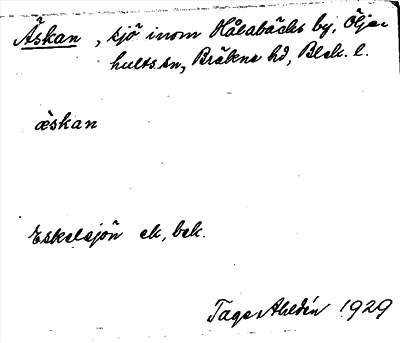 Äskan, sjö inom Hålabäcks by, Öljehults sn, Bräkne hd, Blek. l.
æ̀skan
Eskelsjön ek, bek.
Tage Ahldén 1929